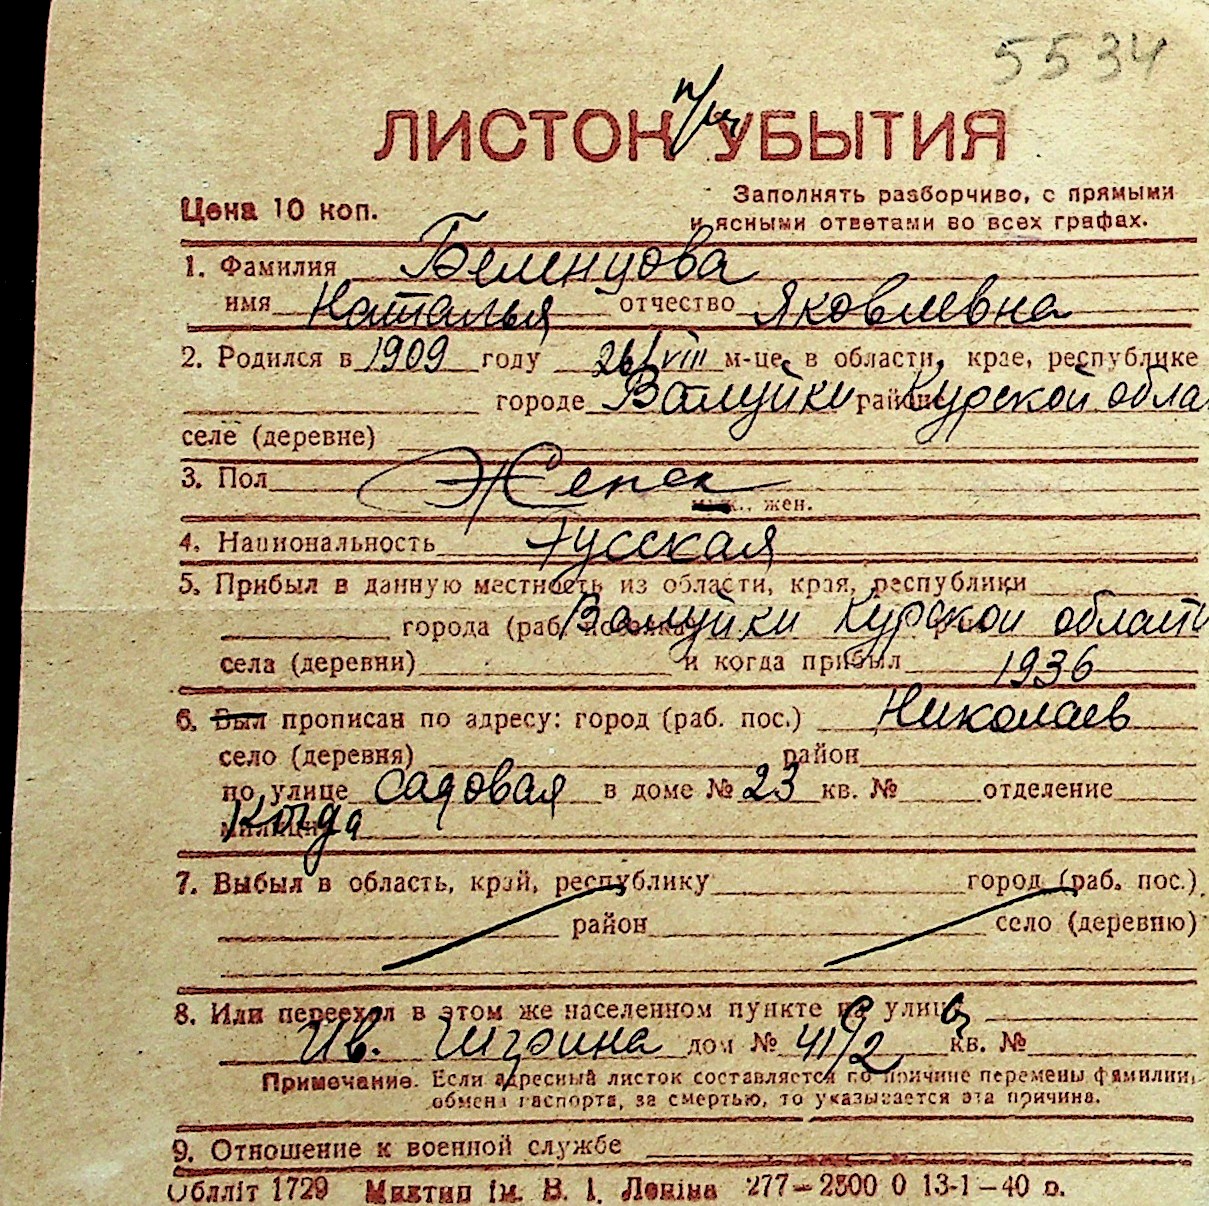 5534
п/щ
ЛИСТОК УБЫТИЯ
Цена 10 коп.
Заполнять разборчиво, с прямыми
и ясными ответами во всех графах.
1. Фамилия Беленцова
имя Наталья отчество Яковлевна
2. Родился в 1909 году 26/VIII м-це, в области, крае, республике
городе Валуйки районе Курской обла
селе (деревне)
3. Пол Женск
муж., жен.
4. Национальность Русская
5. Прибыл в данную местность из области, края, республики
города (раб. поселка) Валуйки Курской области
села (деревни) и когда прибыл 1936
6. Был прописан по адресу: город (раб. пос.) Николаев
село (деревня) район
по улице садовая в доме № 23 кв. № отделение
милиции Когда
7. Выбыл в область, край, республику город (раб. пос.)
район село (деревню)
8. Или переехал в этом же населенном пункте на улицу
Ив. дом № 41/2 кв. №
Примечание. Если адресный листок составляется по причине перемены фамилии,
обмена паспорта, за смертью, то указывается эта причина.
9. Отношение к военной службе
Обллiт 1729 Миктип iм. В. I. Ленiна 277–2500 0 13-1–40 р.